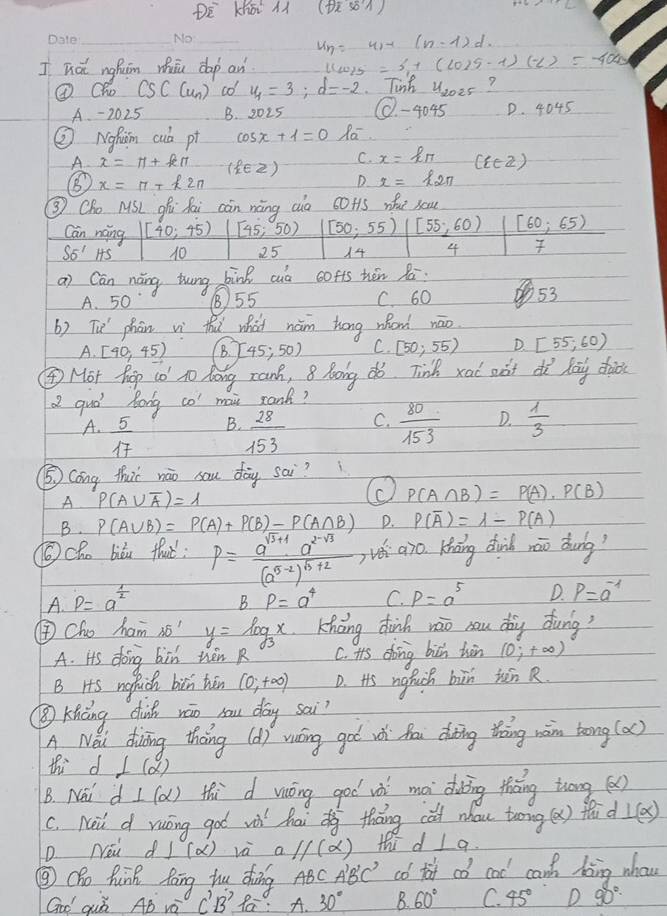 Đề khối 11 (Đề số 1)
Date No
uₙ = u₁ + (n-1)d.
I Trắc nghiệm nhiều đáp án u₂₀₂₅ = 3 + (2025-1)(-2) = -4045
① Cho CSC (uₙ) có u₁ = 3; d = -2. Tính u₂₀₂₅?
A. -2025 B. 2025 C. -4045 D. 4045
② Nghiệm của pt cosx + 1 = 0 là
A. x = π + kπ (k∈Z) C. x = kπ (k∈Z)
B x = π + k2π D. x = k2π
③ Cho MSL ghi lại cân nặng của 60 HS như sau
Cân nặng [40; 45) [45; 50) [50; 55) [55; 60) [60; 65)
Số HS 10 25 14 4 7
a) Cân nặng trung bình của 60 HS trên là:
A. 50 B 55 C. 60 D 53
b) Tứ phân vị thứ nhất nằm trong nhóm nào
A. [40, 45) B. [45; 50) C. [50; 55) D. [55; 60)
④ Một hộp có 10 bóng xanh, 8 bóng đỏ. Tính xác suất để lấy được
2 quả bóng có màu xanh?
A. 5/17 B. 28/153 C. 80/153 D. 1/3
⑤ Công thức nào sau đây sai?
A P(A∪Ā) = 1 C P(A∩B) = P(A).P(B)
B. P(A∪B) = P(A) + P(B) - P(A∩B) D. P(Ā) = 1 - P(A)
⑥ Cho biểu thức: P = (a^(√3+1) . a^(2-√3)) / (a^(√5-2))^(√5+2), với a>0. Khẳng định nào đúng?
A. P = a^(1/2) B P = a⁴ C. P = a⁵ D. P = a⁻¹
⑦ Cho hàm số y = log_√3 x. Khẳng định nào sau đây đúng?
A. HS đồng biến trên R C. HS đồng biến trên (0; +∞)
B HS nghịch biến trên (0; +∞) D. HS nghịch biến trên R.
⑧ Khẳng định nào sau đây sai?
A Nếu đường thẳng (d) vuông góc với hai đường thẳng nằm trong (α)
thì d ⊥ (α)
B. Nếu d ⊥ (α) thì d vuông góc với mọi đường thẳng trong (α)
C. Nếu d vuông góc với hai đg thẳng cắt nhau trong (α) thì d ⊥ (α)
D. Nếu d ⊥ (α) và a // (α) thì d ⊥ a.
⑨ Cho hình lăng trụ đứng ABC A'B'C' có tất cả các cạnh bằng nhau
Góc giữa AB và C'B' là: A. 30° B. 60° C. 45° D 90°.